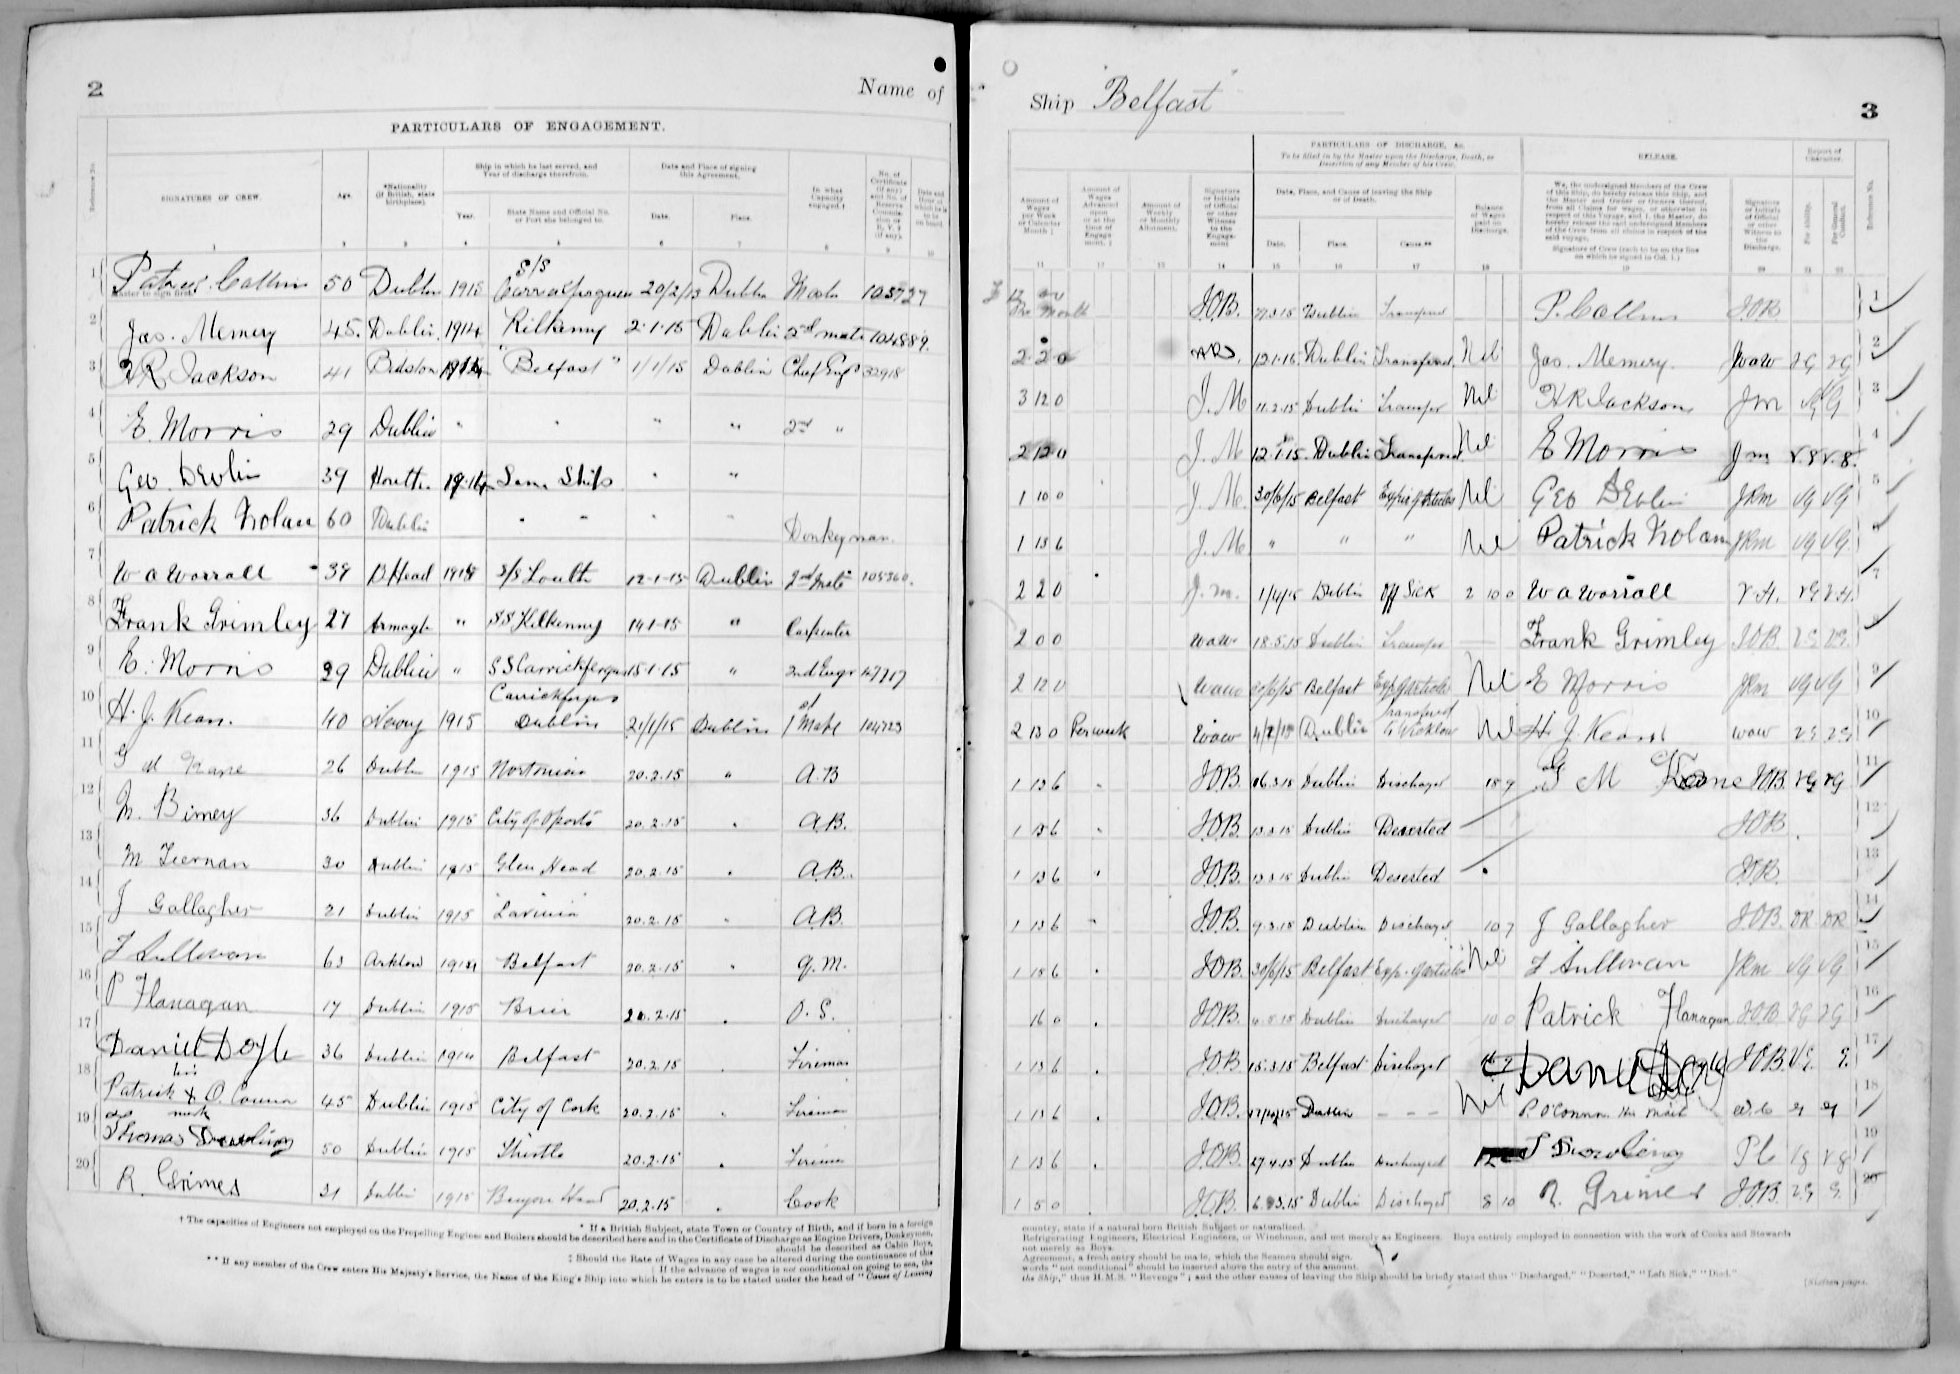 2
Name of
PARTICULARS OF ENGAGEMENT.
Reference No.
SIGNATURES OF CREW.
Age.
*Nationality (If British, state birthplace).
Ship in which he last served, and Year of discharge therefrom.
Year.
State Name and Official No. or Port she belonged to.
Date and Place of signing this Agreement.
Date.
Place.
In what Capacity engaged.†
1 2 3 4 5 6 7 8 9 10
1 50 Dublin S/S Dublin
Master to sign first
2 Jas. Memery 45. Dublin. 1914 Kilkenny 2·1·15 Dublin 2nd mate 104889.
3 H R Jackson 41 "Belfast" 1/1/15 Dublin Chief Engr 32918
4 E. Morris 29 Dublin " " " " 2nd "
5 Geo. Devlin 39 Howth 1914 Same Ship " "
6 Patrick Nolan 60 Dublin " " " " Donkeyman.
7 W A Worrall 38 B Head S/S Louth 12-1-15 Dublin 2nd Mate 105360.
8 Frank Grimley 27 Armagh " SS Kilkenny 14-1-15 " Carpenter
9 E. Morris 29 Dublin " SS Carrickfergus 15·1·15 " 2nd Engr 47717
10 H. J. Kean. 40 Newry 1915 Carrickfergus Dublin 21/1/15 Dublin 1st Mate 104723
11 G M Keane 26 Dublin 1915 20.2.15 " A.B
12 36 Dublin 1915 City of Oporto 20.2.15 " A.B.
13 M Tiernan 30 Dublin 1915 Glen Head 20.2.15 " A.B.
14 J Gallagher 21 Dublin 1915 20.2.15 " A.B.
15 Sullivan 63 Arklow Belfast 20.2.15 " Q.M.
16 P Flanagan 17 Dublin 1915 20.2.15 " O.S.
17 Daniel Doyle 36 Dublin 1914 Belfast 20.2.15 " Fireman
18 Patrick X O. Connor 45 Dublin 1915 City of Cork 20.2.15 " Fireman
his
mark
19 Thomas Dowling 50 Dublin 1915 Thistle 20.2.15 " Fireman
20 R. Grimes 31 Dublin 1915 20.2.15 " Cook
† The capacities of Engineers not employed on the Propelling Engines and Boilers should be described here and in the Certificate of Discharge as Engine Drivers, Donkeymen,
* If a British Subject, state Town or Country of Birth, and if born in a foreign
should be described as Cabin Boys,
‡ Should the Rate of Wages in any case be altered during the continuance of the
| If the advance of wages is not conditional on going to sea, the
** If any member of the Crew enters His Majesty's Service, the Name of the King's Ship into which he enters is to be stated under the head of "Cause of Leaving
Ship "Belfast"
3
PARTICULARS OF DISCHARGE, &c.
To be filled in by the Master upon the Discharge, Death, or Desertion of any Member of his Crew.
RELEASE.
Report of Character.
Amount of Wages per Week or Calendar Month
Amount of Wages Advanced upon or at the time of Engagement.
Amount of Weekly or Monthly Allotment.
Signature or Initials of Official or other Witness to the Engagement
Date, Place, and Cause of leaving the Ship or of Death.
Date. Place. Cause.**
Balance of Wages paid on Discharge.
We, the undersigned Members of the Crew of this Ship, do hereby release this Ship, and the Master and Owner or Owners thereof, from all Claims for wages, or otherwise in respect of this Voyage, and I, the Master, do hereby release the said undersigned Members of the Crew from all claims in respect of the said voyage.
Signature of Crew (each to be on the line on which he signed in Col. 1.)
Signature or Initials of Official or other Witness to the Discharge.
For Ability.
For General Conduct.
Reference No.
11 12 13 14 15 16 17 18 19 20 21 22
J.O.B. Dublin J.O.B. 1
2 2 0 Dublin Transferred. Nil Jas. Memery. WaW VG VG 2
3 12 0 J. M 11.2.15 Dublin Transfer Nil H R Jackson Jm VG 3
2 12 0 J. M 12·1·15. Dublin Transferred. Nil E Morris Jm V.G V.G. 4
1 10 0 J. M. 30/6/15 Belfast Nil Geo Devlin JRm VG VG 5
1 13 6 J. M. " " " Nil Patrick Nolan JRm VG VG 6
2 2 0 J. m. 1/4/15 Dublin Off Sick 2 10 0 W A Worrall 7
2 0 0 WaW 18.5.15 Dublin Transfer Frank Grimley J.O.B. VG VG. 8
2 12 0 WaW 30/6/15 Belfast Nil E Morris JRm VG VG 9
2 13 0 Per week WaW Dublin Transferred to Wicklow Nil H. J. Kean WaW VG VG 10
1 13 6 " J.O.B. 16.3.15 Dublin Discharged 18 9 G M Keane J.O.B. VG VG 11
1 13 6 " J.O.B. 13.3.15 Dublin Deserted J.O.B. 12
1 13 6 " J.O.B. 13.3.15 Dublin Deserted J.O.B. 13
1 13 6 " J.O.B. 9.3.15 Dublin Discharged 10 7 J Gallagher J.O.B. DR. DR 14
1 13 6 " J.O.B. 30/6/15 Belfast Nil Sullivan JRm VG VG 15
16 0 " J.O.B. Dublin Discharged 10 0 Patrick Flanagan J.O.B VG VG 16
1 13 6 " J.O.B. 15.3.15 Belfast Discharged Daniel Doyle J.O.B. VG. G. 17
1 13 6 " J.O.B. Dublin Nil P. O'Connor His Mark G G 18
1 13 6 " J.O.B. 27.4.15 Dublin Discharged T Dowling VG VG 19
1 5 0 " J.O.B. Dublin Discharged 8 10 R. Grimes J.O.B VG G. 20
country, state if a natural born British Subject or naturalized.
Refrigerating Engineers, Electrical Engineers, or Winchmen, and not merely as Engineers. Boys entirely employed in connection with the work of Cooks and Stewards
not merely as Boys.
Agreement, a fresh entry should be made, which the Seamen should sign.
words "not conditional" should be inserted above the entry of the amount.
the Ship," thus H.M.S. "Revenge"; and the other causes of leaving the Ship should be briefly stated thus "Discharged," "Deserted," "Left Sick," "Died."
[Sixteen pages.